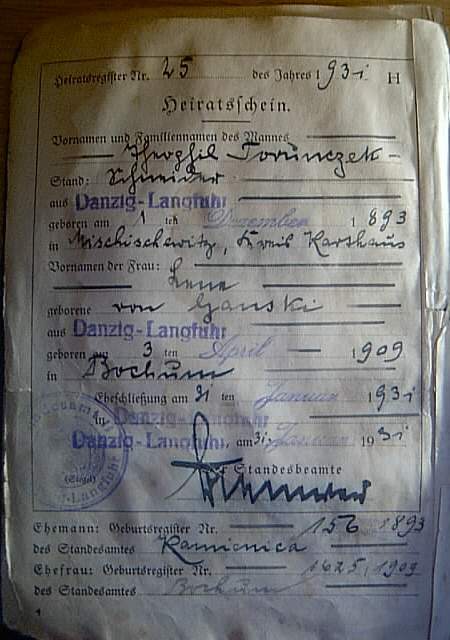 Heiratsregister Nr. 25 des Jahres 1931 H
Heiratsschein.
Vornamen und Familiennamen des Mannes
Theophil Torunczek
Stand: Schneider
aus Danzig-Langfuhr
geboren am 1 ten Dezember 1893
in Mischischewitz, Kreis Karthaus
Vornamen der Frau:
Lene
geborene von Ganski
aus Danzig-Langfuhr
geboren am 3 ten April 1909
in Bochum
Eheschließung am 31 ten Januar 1931
in Danzig-Langfuhr
Danzig-Langfuhr, am 31. Januar 1931
(Siegel) Der Standesbeamte
Ehemann: Geburtsregister Nr. 156 1893
des Standesamtes Kamienica
Ehefrau: Geburtsregister Nr. 1625, 1909
des Standesamtes Bochum
4